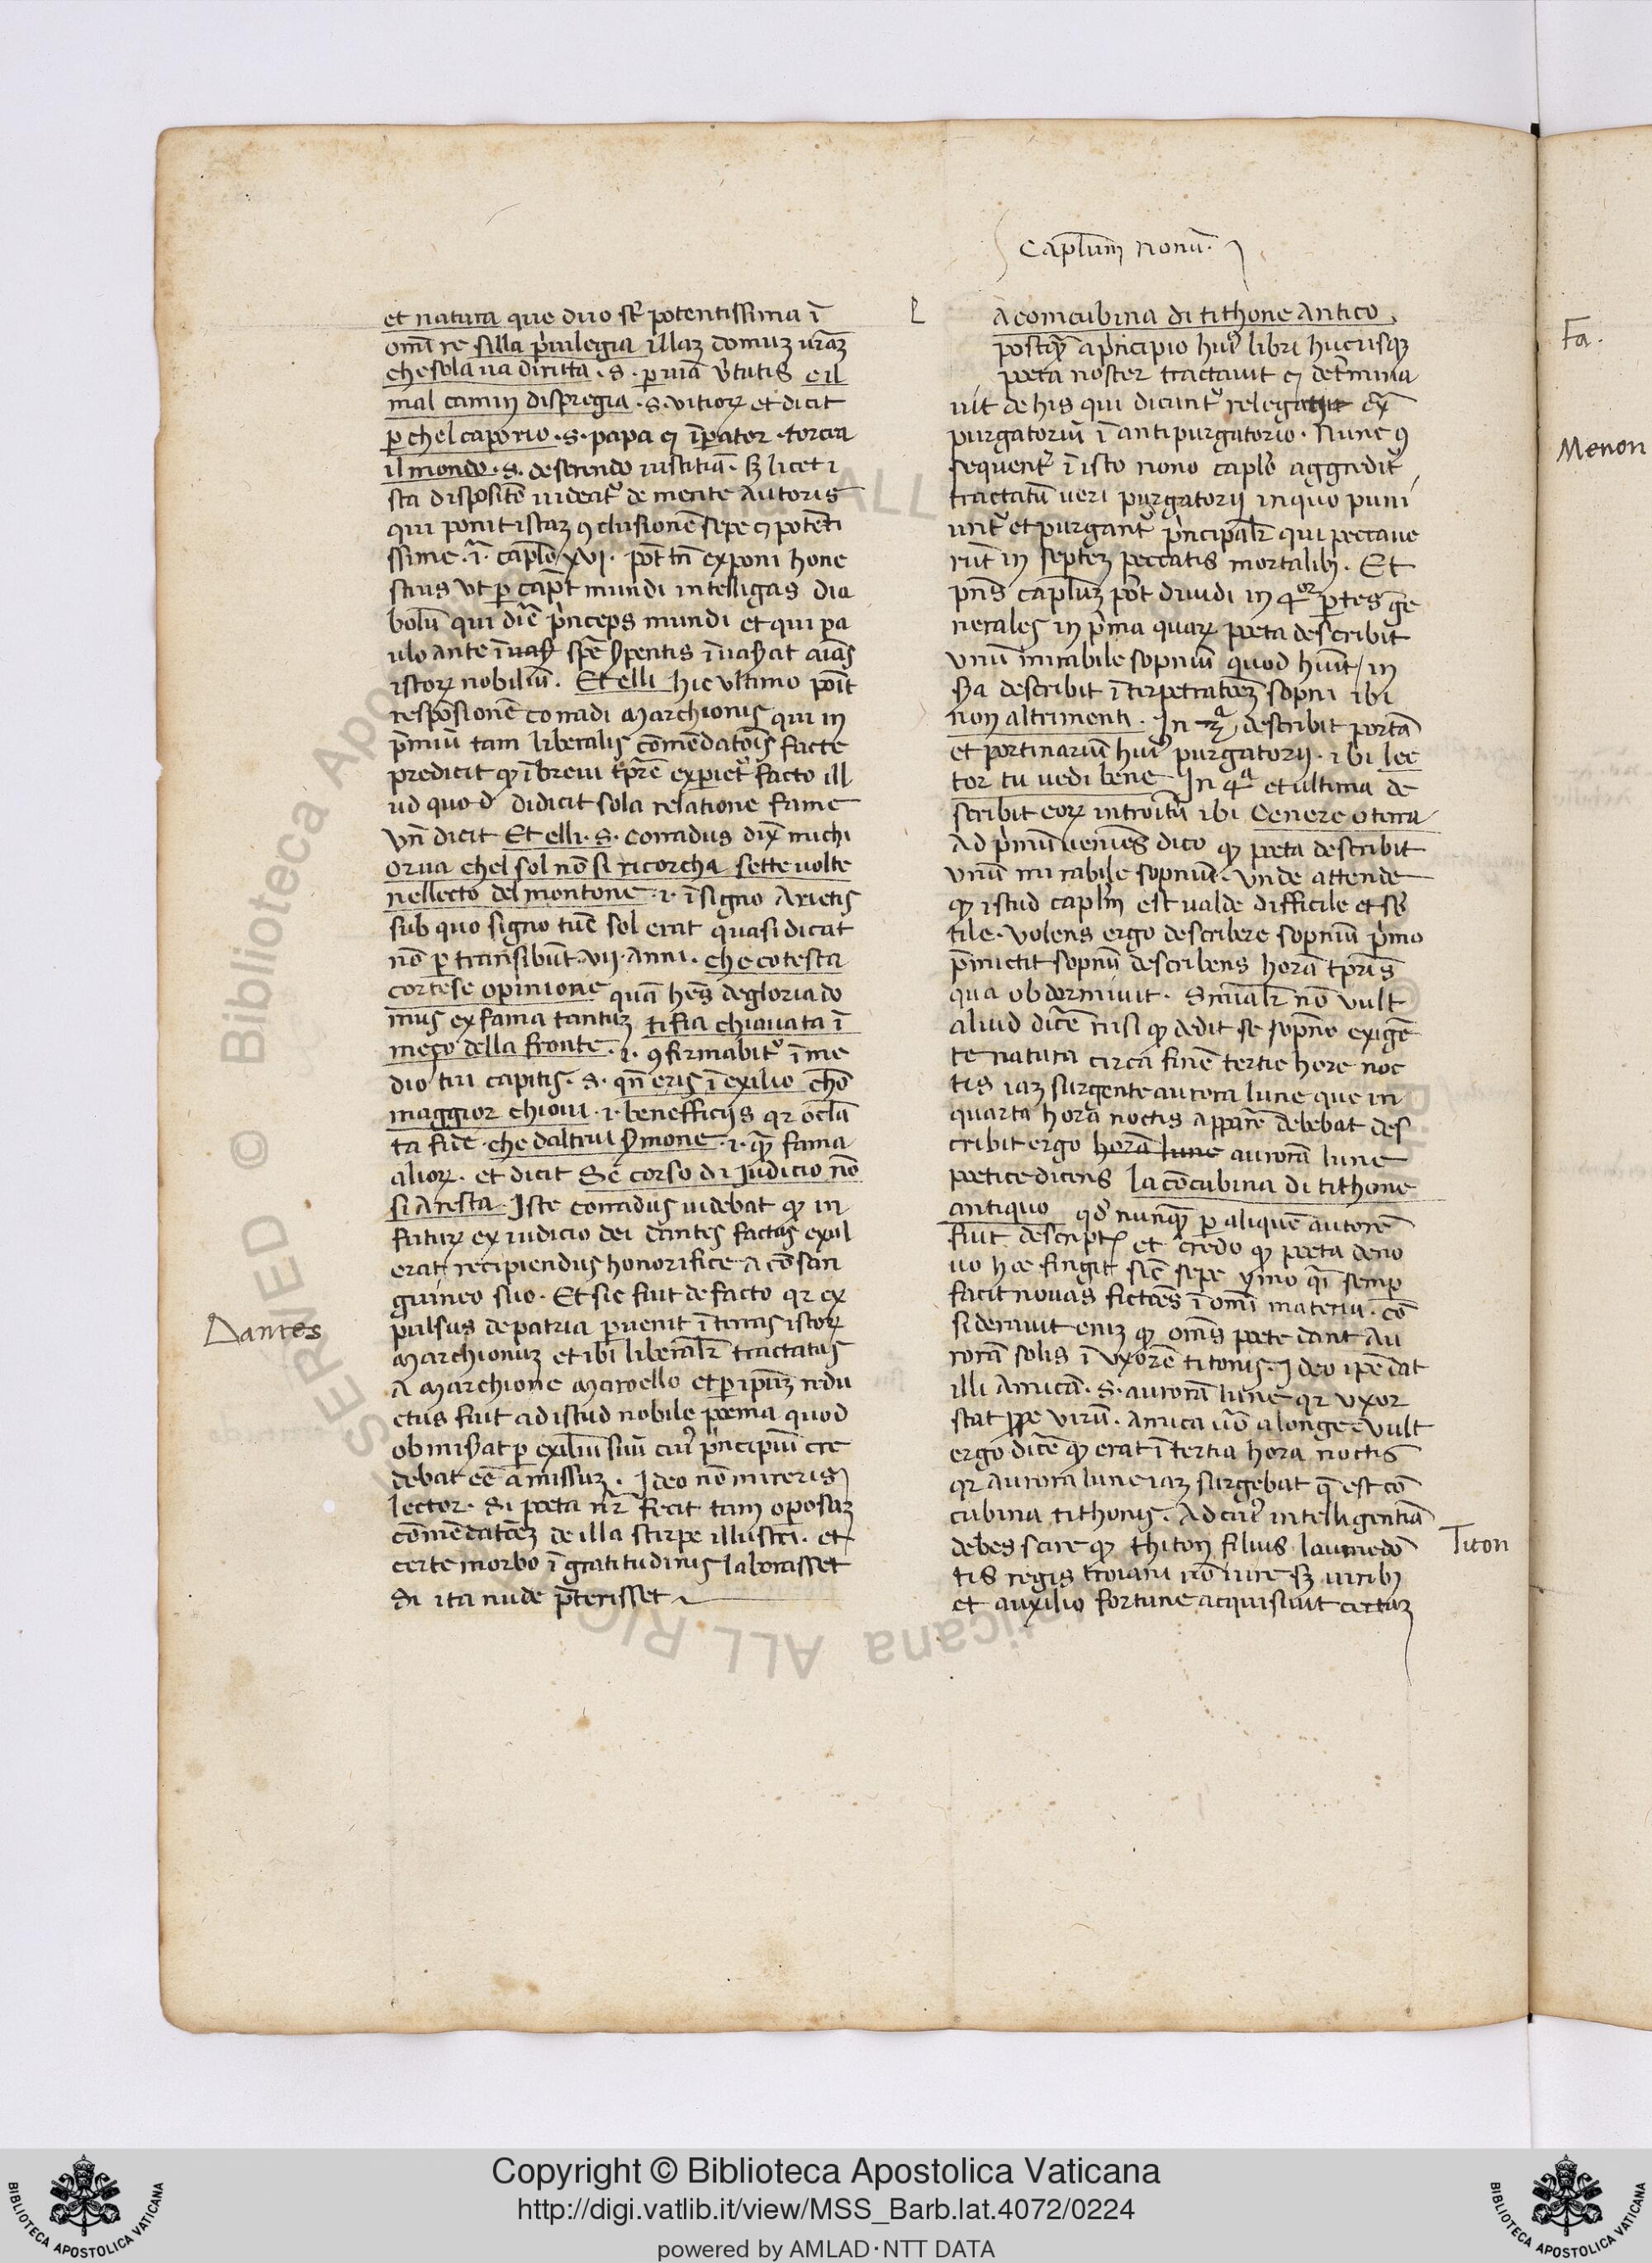 et natura que duo st̄ potentissima ī
om̄i re silla p̄uilegia illaȝ domuȝ ur̄aȝ
che sola ua diritta .s. ꝑ uiā v̄tutis e il
mal camin dispregia .s. uitioꝝ et dicit
ꝑ chel capo rio .s. papa ⁊ īꝑator .torcia
il mondo .s. deserendo iustitiā. sȝ licet i
sta dispositō uideat᷑ de mente autoris
qui ponit istaȝ ꝯclusionē sepe ⁊ potēti
ssime. ī. capl̄o xvi. pōt tn̄ exponi hone
stius vt ꝑ cap̄t mundi intelligas dia
bolū qui dr̄e p̄nceps mundi et qui pa
ulo ante spē ẜpentis īuaẜat aīas
istoꝝ nobiliū. Et elli hic vltimo pōit
respōsionē corradi marchionis qui in
p̄miū tam liberalis cōmēdatoīs facte
predicit ꝙ ībreui tp̄re expiet᷑ facto ill
ud quod didicit sola relatione fame
Vn̄ dicit Et elli .s. corradus dix̄ michi
or ua chel sol nō si ricorcha sette uolte
nel lecto del montone .i. ī signo Arietis
sub quo signo tūc sol erat quasi dicat
nō ꝑtransibūt .vii. anni. che cotesta
cortese opinione quā hēs de gloria do
mus ex fama tantuȝ ti fia chiauata ī
meço della fronte .i. ꝯfirmabit᷑ ī me
dio tui capitis .s. qn̄ eris ī exilio cħo
maggior chioui .i. beneficijs qr ocl̄a
ta fide che daltrui ẜmone .i. qȝ fama
alioꝝ. et dicit Se corso di Judicio nō
si Aresta Iste corradus uidebat ꝙ in
futuꝝ ex iudicio dei dantes factus exul
erat recipiendus honorifice a cōsan
guineo suo. Et sic fiut de facto qr ex
pulsus de patria ꝑuenit ī terras istoꝝ
marchionuȝ et ibi liberalr̄ tractatus
A marchione maroello et ꝑ ip̄uȝ redu
ctus fuit ad istud nobile poema quod
obmiẜat ꝑ exiliū suū cui᷒ p̄ncipiū cre
debat eē amissuȝ. Ideo nō mireris
lector. Si poeta nr̄ fecit tam oposaȝ
cōmēdatōeȝ de illa stirpe illustri. et
certe morbo īgratitudinis laborasset
Si ita nude p̄terisset
Dantes
Capl̄um nonū.
L
Aconcubina di tithone Antico.
postq̄ȝ a p̄ncipio hui᷒ libri hucusqȝ
poeta noster tractauit ⁊ det̄mina
uit de his qui dicunt᷑ relegati ex̄
purgatoriū ī antipurgatorio. Nunc ꝯ
sequent᷑ ī isto nono capl̄o aggredit᷑
tractatū ueri purgatorij in quo puni
unt᷑ et purgant᷑ p̄ncipalr̄ qui peccaue
rūt in septeȝ peccatis mortalibȝ. Et
pn̄s capl̄uȝ pōt diuidi in 4or ꝑtes ge
nerales in p̄ma quaꝝ poeta describit
vnū mirabile sopniū quod hūit / in
ẜa describit īterpetratōeȝ sopni ibi
non altrimenti. In 3a describit portā
et portinariū hui᷒ purgatorij. ibi lec
tor tu uedi bene In 4a et ultima de
scribit eoꝝ introitū ibi Cenere o terra
Ad p̄mū ueniēs dico ꝙ poeta describit
vnū mirabile sopniū. vnde attende
ꝙ istud capl̄m est ualde difficile et sb̄
tile. Volens ergo describere sopniū p̄mo
p̄mictit sopnū describens horā tpr̄is
qua obdormiuit. Sn̄ialr̄ nō vult
aliud dicē nisi ꝙ dedit se sopno exigē
te natura circa finē tertie hore noc
tis iaȝ surgente aurora lune que in
quarta hora noctis apparē debebat des
cribit ergo horā lune aurorā lune
poetice dicens la cōcubina di tithone
antiquo qd̄ nunqȝ ꝑ aliquē autorē
fiut descript᷒ et credo ꝙ poeta de no
uo hoc fingit sic̄ sepe ymo q̄si semꝑ
facit nouas fictōes ī omī materia. cō
siderauit eniȝ ꝙ om̄s poete dant au
rorā solis ī vxorē titonis. Ideo ip̄e dat
illi Amicā .s. aurorā lune qr vxor
stat ꝓpe virū. Amica ūo a longe vult
ergo dicē ꝙ erat ī tertia hora noctis
qr aurora lune iaȝ surgebat q̄ est cō
cubina tithonis. Ad cui᷒ intelligentiā
debes scire ꝙ thiton filius laumedō
tis regis troiani nō iure sȝ uiribȝ
et auxilio fortune acquisiuit certaȝ
Titon
Fa.
Menon
Copyright © Biblioteca Apostolica Vaticana
http://digi.vatlib.it/view/MSS_Barb.lat.4072/0224
powered by AMLAD·NTT DATA
BIBLIOTECA APOSTOLICA VATICANA
BIBLIOTECA APOSTOLICA VATICANA